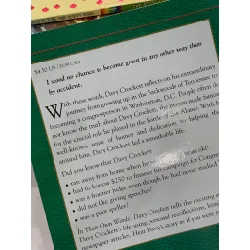 $4.50 US /
I stood no chance to become great in any other way than
by accident.
With these words, Davy Crockett reflects on his extraordinary
journey from growing up in the backwoods of Tennessee to
becoming a congressman in Washington, D.C. People often do
not know the truth about Davy Crockett, the man
for the crucial role he played in the battle of the Alamo. With his
well-known sense of humor and dedication to helping
man, Davy Crockett led a remarkable life.
Did you know that Davy Crockett...
• ran away from home when he
• had to borrow $250 to finance his campaign for Congress
• was a frontier judge even though he had never studied
• did not like giving speeches?
• was a poor speller?
In Their Own Words: Davy Crockett tells the exciting
Crockett's using personal recollections,
newspaper articles. Hear Davy's story as if you were